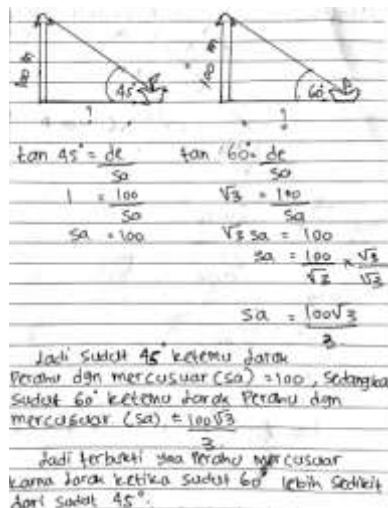 100 m 45° 100 m 60°
? ?
tan 45° = de/sa tan 60° = de/sa
1 = 100/sa √3 = 100/sa
sa = 100 √3 sa = 100
sa = 100/√3 × √3/√3
sa = 100√3/3
Jadi sudut 45° ketemu Jarak
Perahu dgn mercusuar (sa) = 100, Sedangkan
sudut 60° ketemu Jarak Perahu dgn
mercusuar (sa) = 100√3/3
Jadi terbukti Perahu mercusuar
karna Jarak ketika sudut 60° lebih Sedikit
dari sudut 45°.